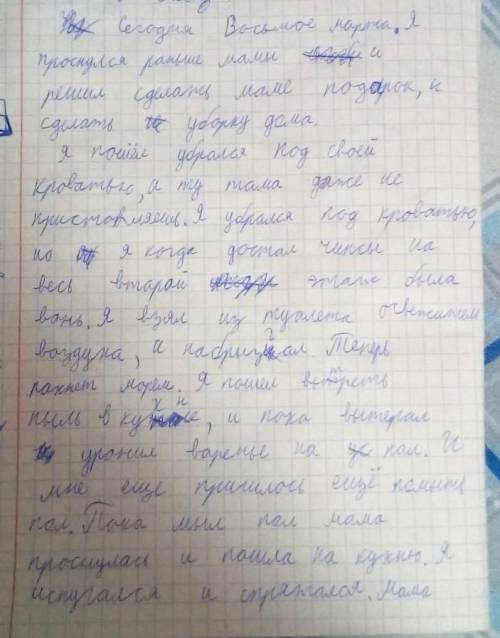 Сегодня Восьмое марта. Я
проснулся раньше мамы и
решил сделать маме подарок, и
сделать уборку дома.
Я пошёл убрался под своей
кроватью, а ту тама даже не
пристовляешь. Я убрался под кроватью,
но я когда достал чипсы на
весь второй этаж была
вонь. Я взял из туалета освежитем
воздуха, и набризгал. Теперь
пахнет морем. Я пошел вытреть
пыль в кухне, и пока вытерал
уронил варенье на пол. И
мне еще пришлось ещё помыть
пол. Пока мыл пол мама
проснулась и пошла на кухню. Я
испугался и спрятался. Мама